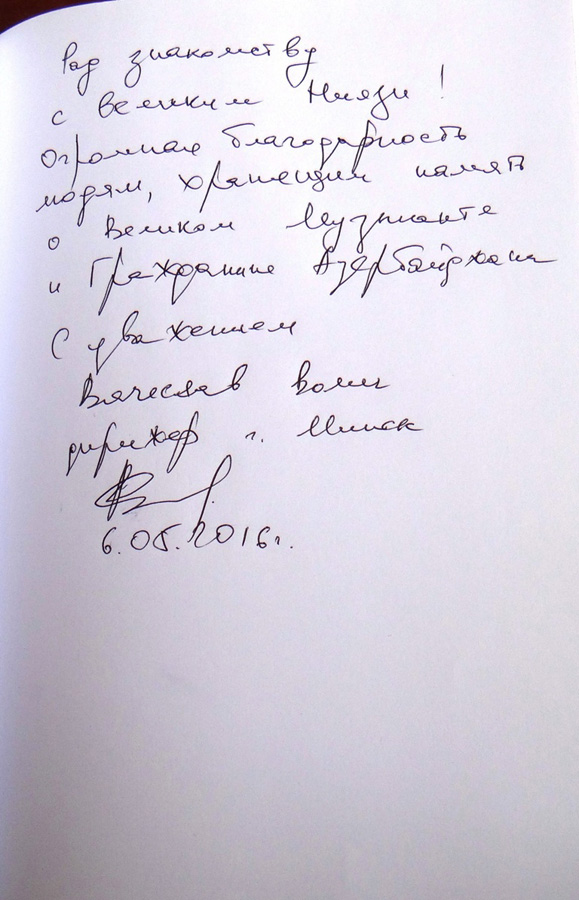 Рад знакомству
с Великим Ниязи!
Огромная благодарность
людям, хранящим память
о Великом Музыканте
и Гражданине Азербайджана
С уважением
Вячеслав Волич
дирижер г. Минск
6.05.2016г.